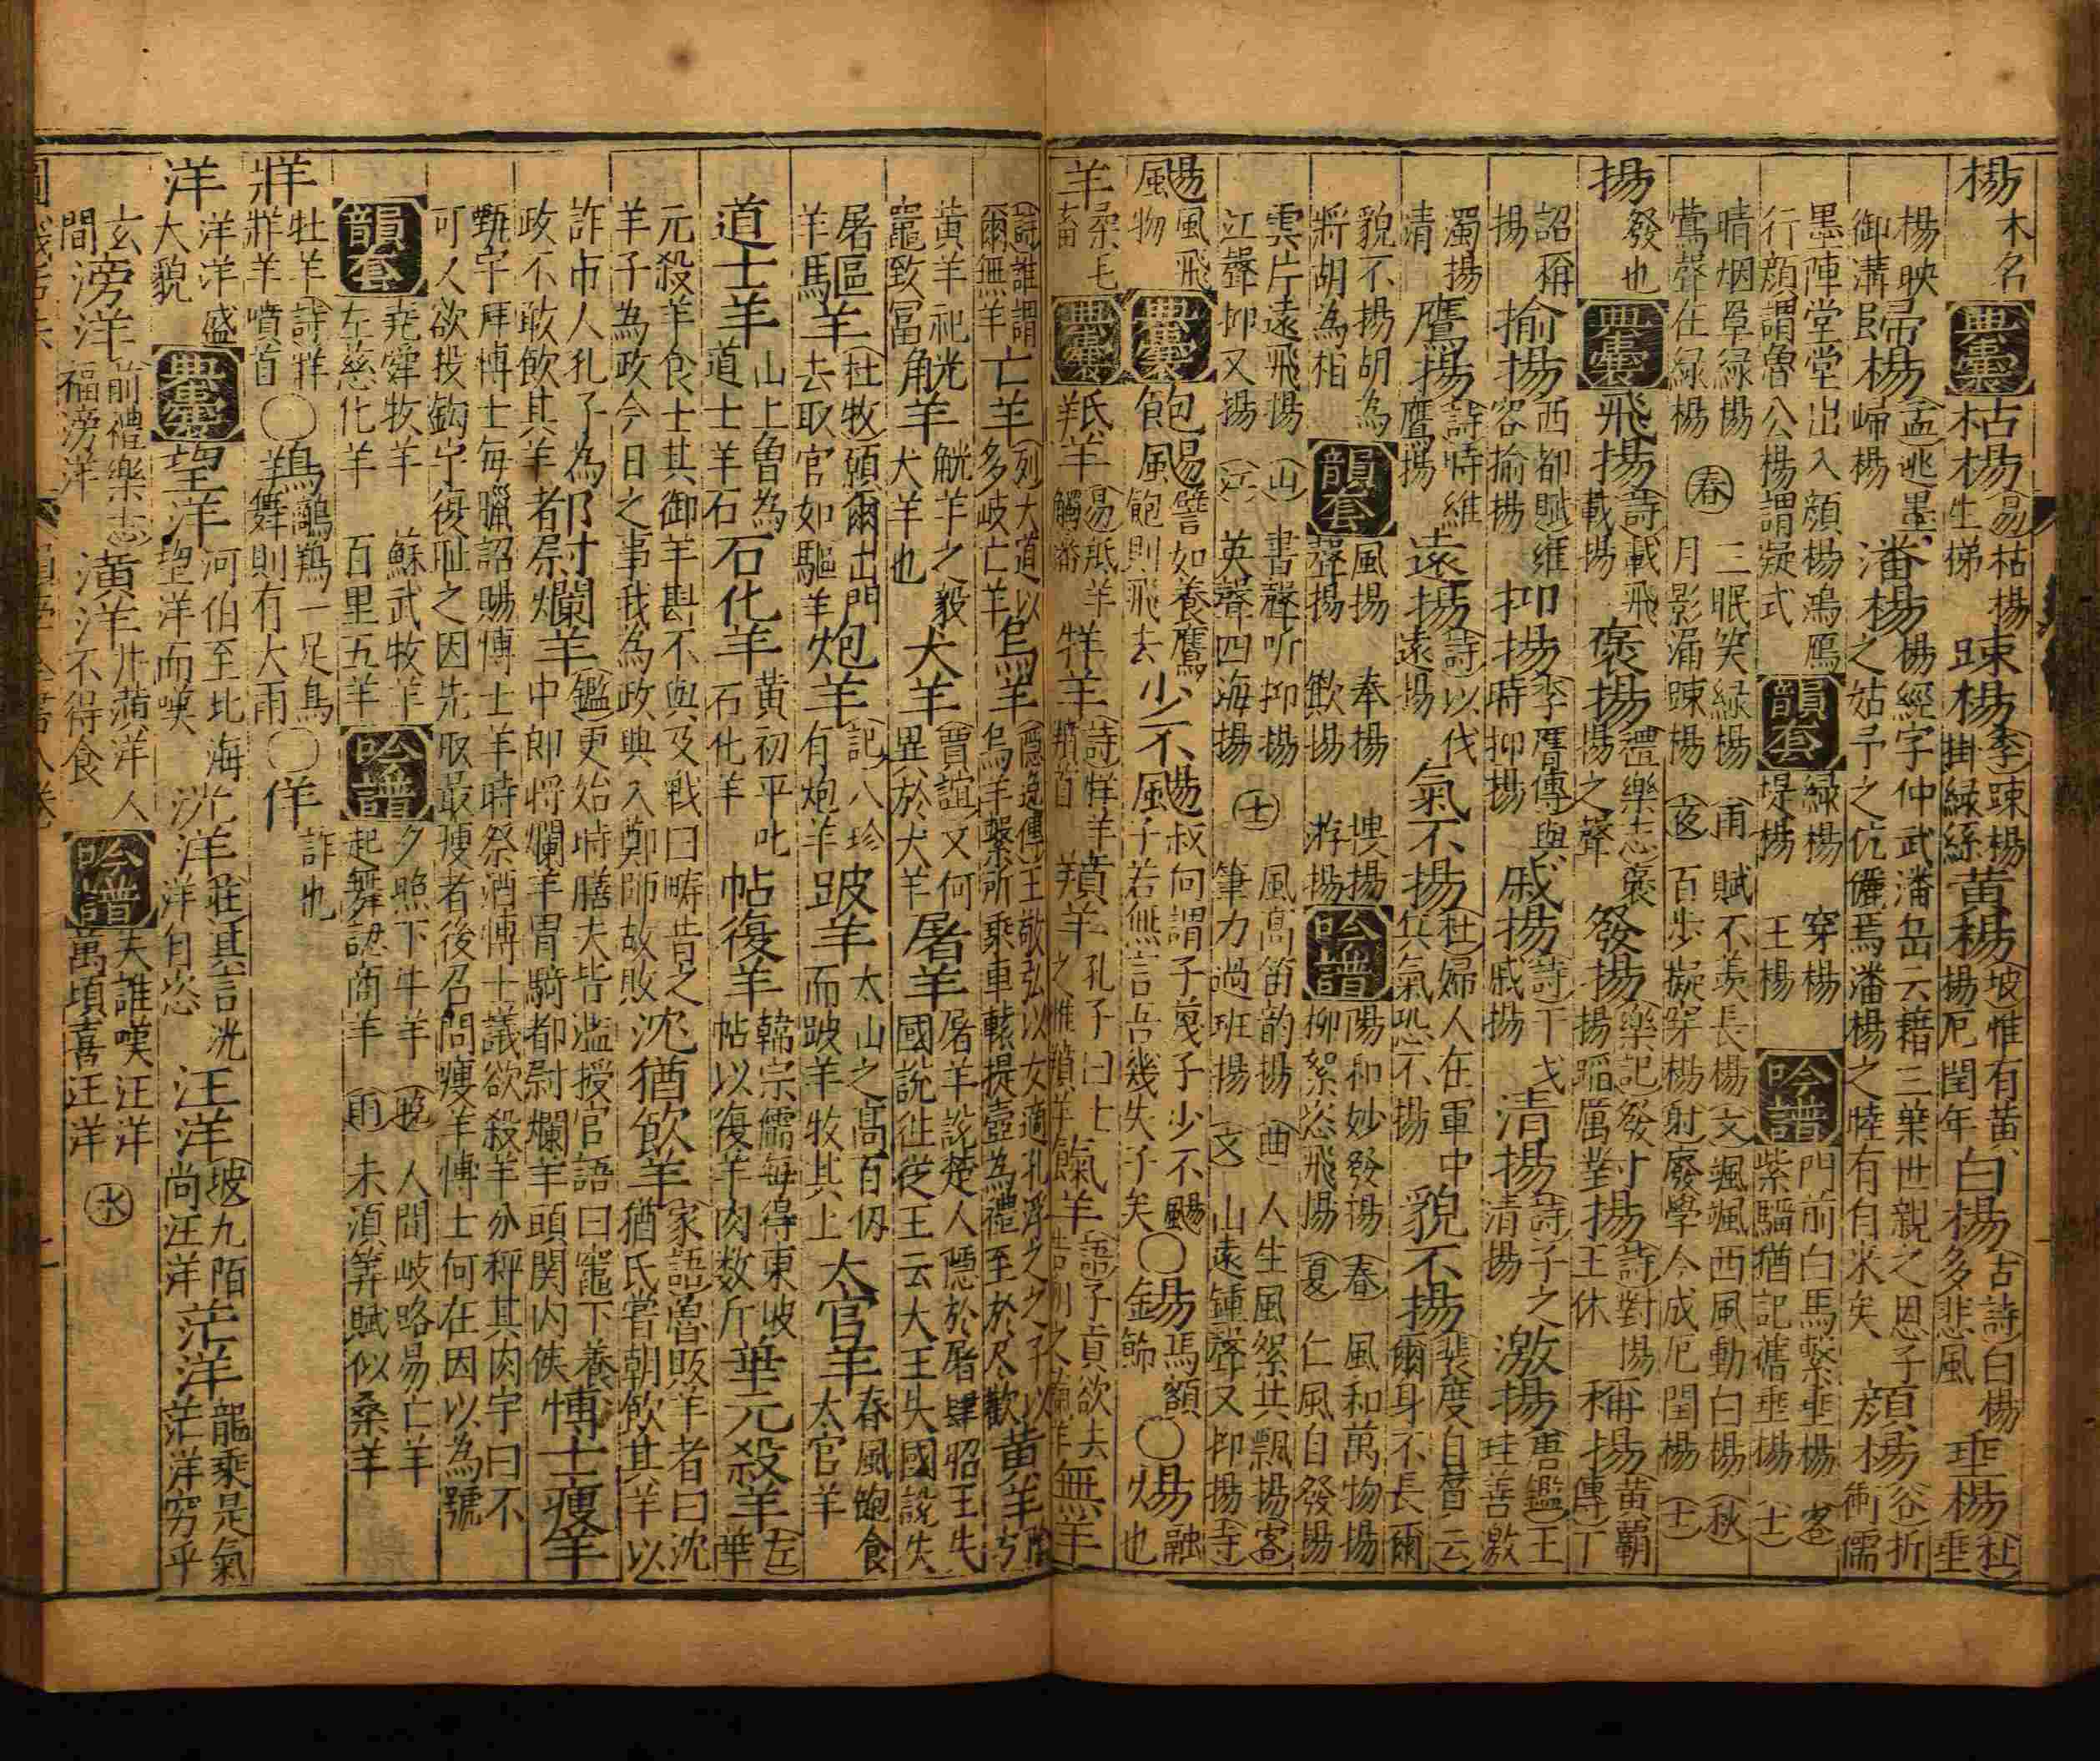 楊 木名 典囊 枯楊 易枯楊生梯 踈楊 李踈楊掛緑絲 黄楊 坡惟有黄楊厄閏年 白楊 古詩白楊多悲風 垂楊 杜垂
楊映御溝 歸楊 孟逃墨歸楊 潘楊 楊經字仲武潘岳云藉三葉世親之恩子之姑予之伉儷焉潘楊之睦有自來矣 顔楊 谷折衝儒
墨陣堂堂出入顔楊鴻鴈行顔謂魯公楊謂凝式 韻套 緑楊 堤楊 穿楊 王楊 吟譜 門前白馬繫垂楊 紫騮猶記舊垂楊 客 士
晴烟羃緑楊 鶯聲在緑楊 春 三眠笑緑楊 月影漏踈楊 雨 夜 賦不羨長楊 百步凝穿楊 文 射 颯颯西風動白楊 廢學今成厄閏楊 秋 士
揚 發也 典囊 飛揚 詩載飛載揚 褒揚 禮樂志褒揚之聲 發揚 樂記發揚蹈厲 對揚 詩對揚王休 稱揚 黄霸傳丁
詔稱揚 揄揚 西都賦雍容揄揚 抑揚 李膺傳與時抑揚 戚揚 詩干戈戚揚 清揚 詩子之清揚 激揚 唐鑑王珪善激
濁揚清 鷹揚 詩時維鷹揚 遠揚 詩以伐遠揚 氣不揚 杜婦人在軍中兵氣恐不揚 貌不揚 裴度自賛云爾身不長爾
貌不揚胡為將胡為相 韻套 風揚 聲揚 奉揚 揚 揚 游揚 吟譜 陽和妙發揚 柳絮恣飛揚 春 夏 風和萬物揚 仁風自發揚
雲片遠飛揚 江聲抑又揚 山 江 書聲听抑揚 英聲四海揚 士 風高笛韵揚 筆力過班揚 曲 文 人生風絮共飄揚 山遠鍾聲又抑揚 客 寺
颺 風飛物 典囊 飽颺 譬如養鷹飽則飛去 少不颺 叔向謂子蔑子少不颺子若無言吾幾失子矣 ○鍚 馬額飾 ○煬 融也
羊 柔毛畜 典囊 羝羊 易羝羊觸藩 牂羊 詩牂羊墳首 羵羊 孔子曰土之怪羵羊 餼羊 語子貢欲去告朔之餼羊 無羊
詩誰謂爾無羊 亡羊 列大道以多岐亡羊 烏羊 隱逸傳王敬弘以女適孔淳之之子以烏羊繫所乘車轅提壺為禮至於尽歡 黄羊 陰子方
黄羊祀竈致冨 觥角羊 觥羊之毅犬羊也 犬羊 賈誼又何異於犬羊 屠羊 屠羊說楚人隱於屠肆昭王失國說徃從王云大王失國說失
屠羊 驅羊 杜牧頭爾出門去取官如驅羊 炮羊 記八珍有炮羊 跛羊 太山之高百仭而跛羊牧其上 太官羊 春風飽食太官羊
道士羊 山上魯為道士羊石 石化羊 黄初平叱石化羊 帖復羊 韓宗儒每得東坡帖以復羊肉数斤 華元殺羊 左華
元殺羊食士其御羊斟不與及戰曰疇昔之羊子為政今日之事我為政與入鄭師故敗 沈猶飲羊 家語魯販羊者曰沈猶氏甞朝飲其羊以
詐市人孔子為政不敢飲其羊者 尉爛羊 鑑更始時膳夫皆濫授官語曰竈下養中郎將爛羊胃騎都尉爛羊頭関内侯 博士瘦羊
甄宇拜博士每臘詔賜博士羊時祭酒博士議欲殺羊分秤其肉宇曰不可人欲投鈎宇復恥之因先取最瘦者後召問瘦羊博士何在因以為號
韻套 堯舜牧羊 左慈化羊 蘇武牧羊 百里五羊 吟譜 夕照下牛羊 起舞認商羊 晚 雨 人間岐路易亡羊 未須筭賦似桑羊
牂 牡羊詩牂羊墳首 ○鴹 鷫鴹一足鳥舞則有大雨 ○佯 詐也
洋 洋洋盛大貌 典囊 望洋 河伯至北海望洋而嘆 洸洋 莊其言洸洋自恣 汪洋 坡九陌尚汪洋 茫洋 龍乘是氣茫洋窮乎
玄間 滂洋 前禮樂志福滂洋 潢洋 潢洋人不得食 吟譜 夫誰嘆汪洋 萬頃喜汪洋 水